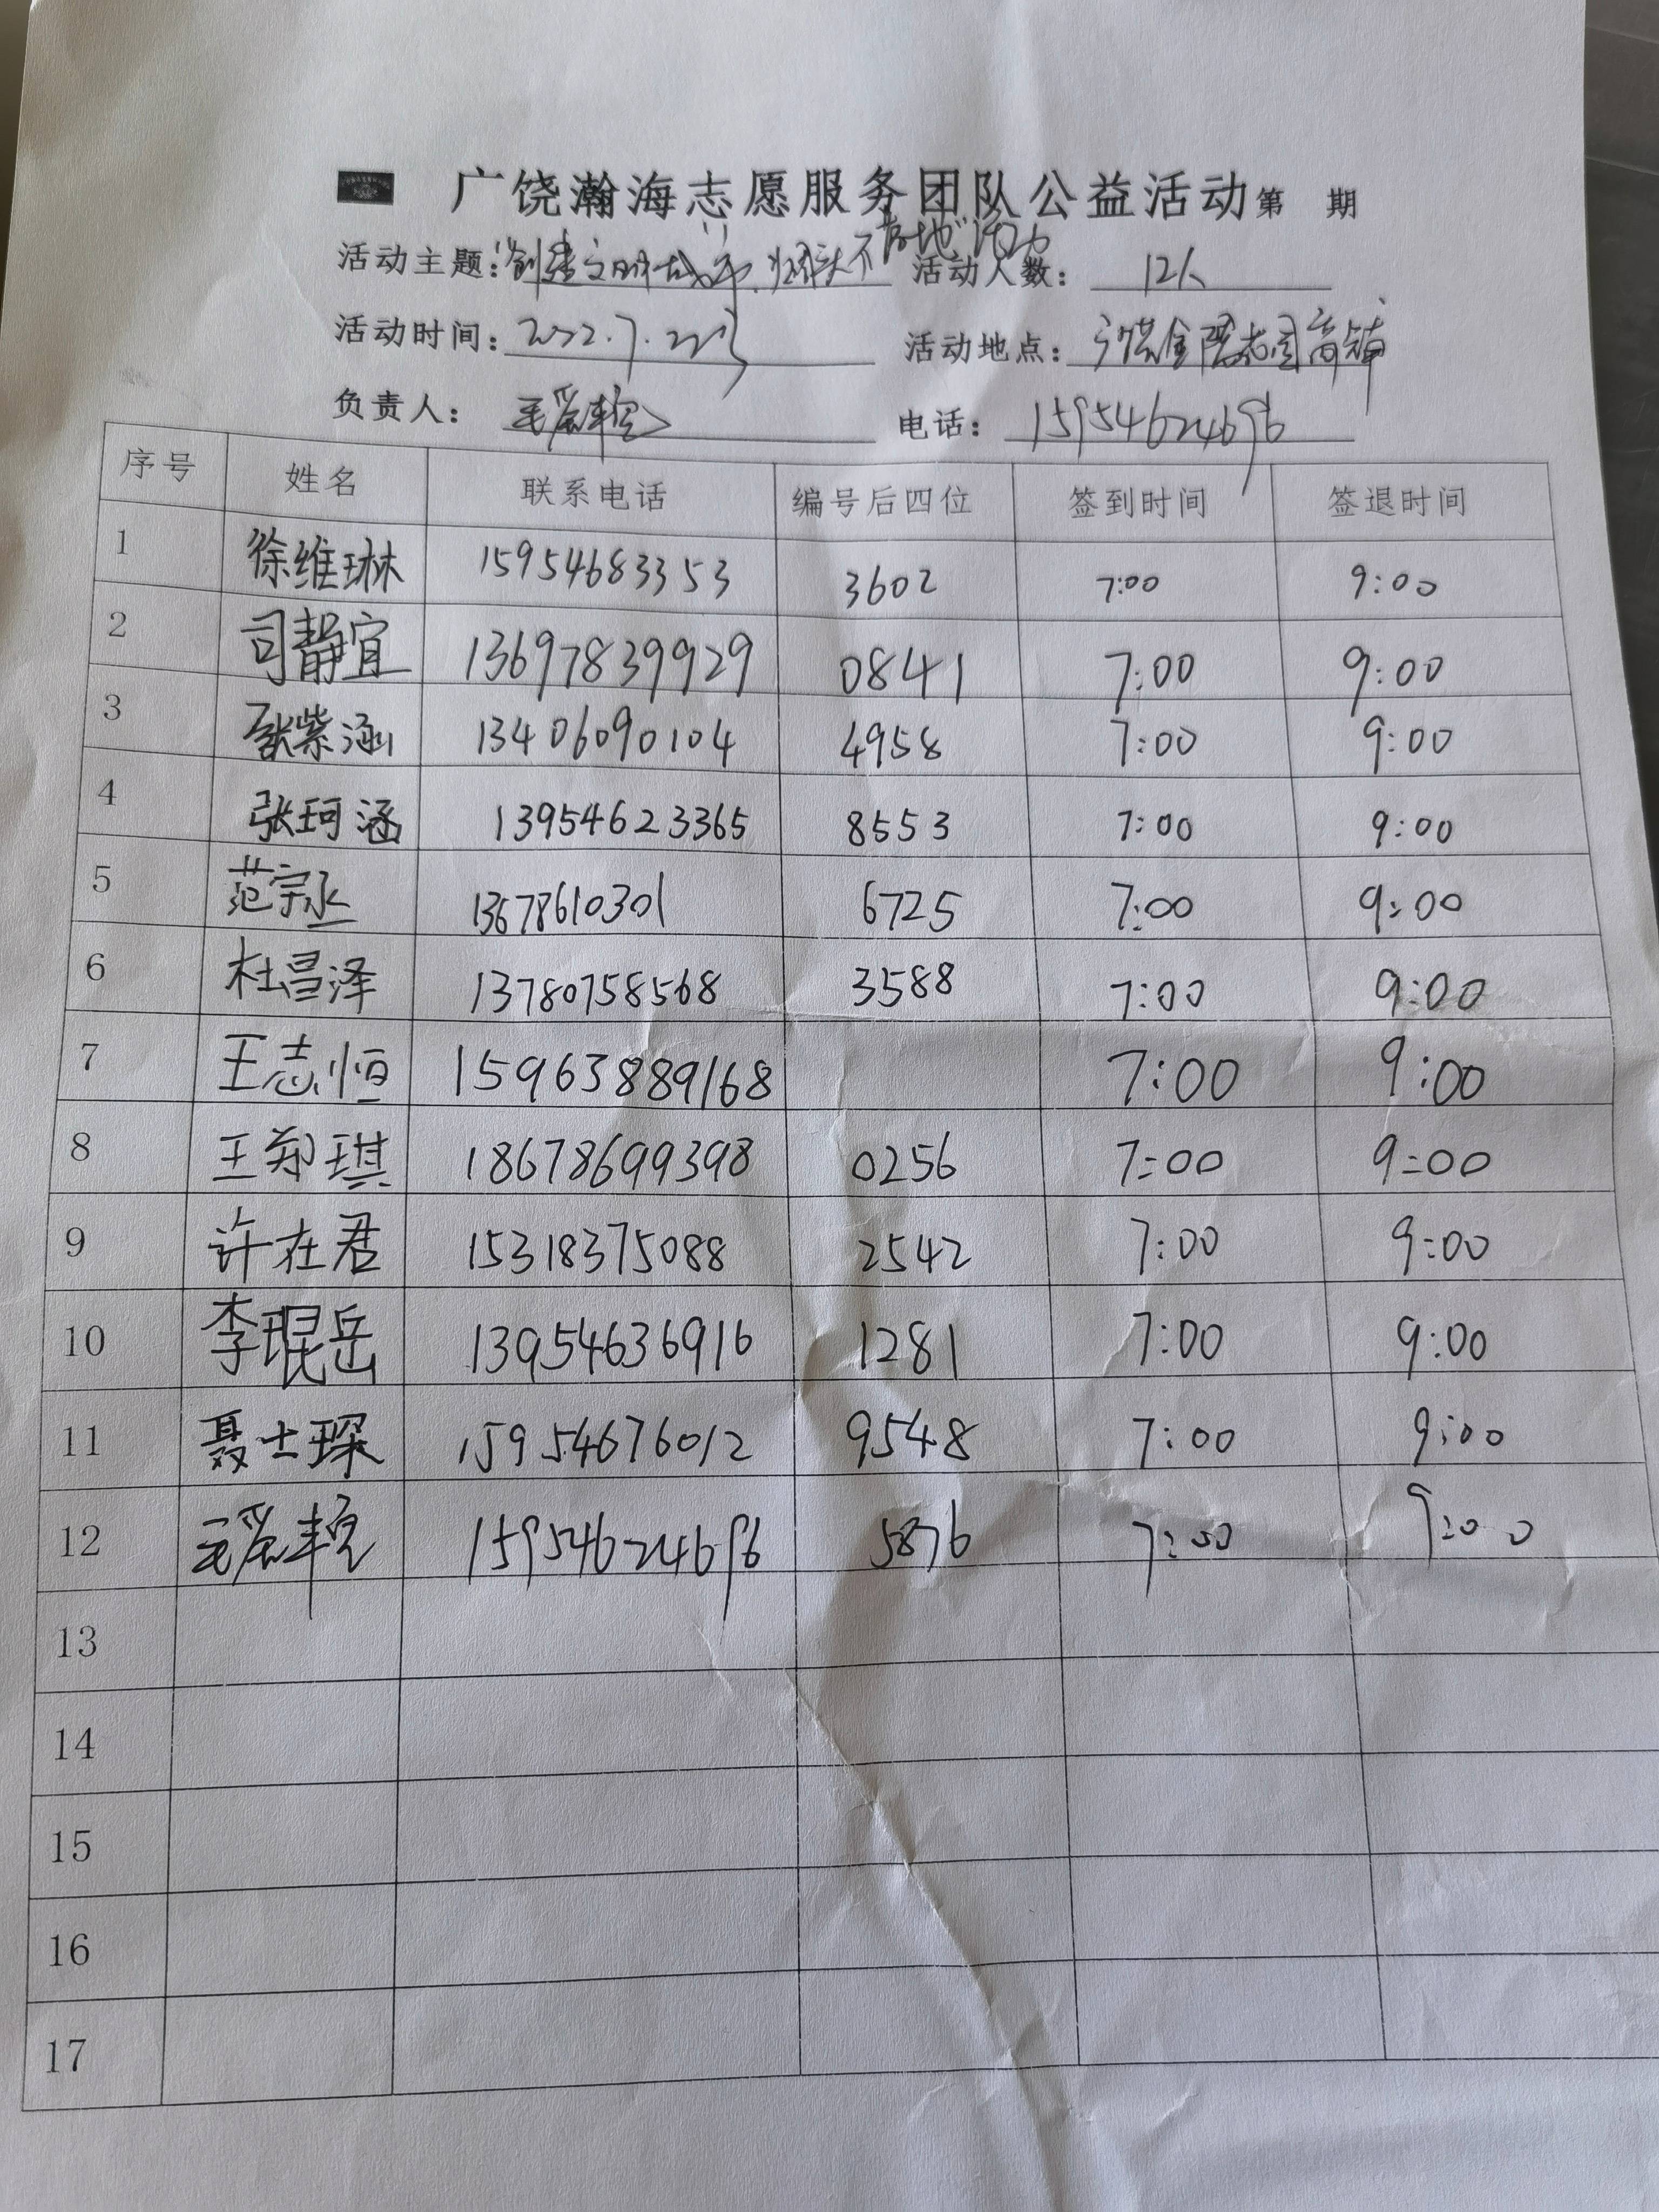 广饶瀚海志愿服务团队公益活动第 期
活动主题:"创建文明城市,烟头不落地"活动 活动人数: 12人
活动时间: 2022.7.22号 活动地点:
负责人: 电话: 15954624696
序号 姓名 联系电话 编号后四位 签到时间 签退时间
1 徐维琳 15954683353 3602 7:00 9:00
2 司静宜 13697839929 0841 7:00 9:00
3 张紫涵 13406090104 4958 7:00 9:00
4 张珂涵 13954623365 8553 7:00 9:00
5 范宗丞 13678610301 6725 7:00 9:00
6 杜昌泽 13780758568 3588 7:00 9:00
7 王志恒 159638889168 7:00 9:00
8 王郑琪 18678699398 0256 7:00 9:00
9 许在君 15318375088 2542 7:00 9:00
10 李琨岳 13954636916 1281 7:00 9:00
11 聂士琛 15954676012 9548 7:00 9:00
12 15954624696 5876 7:00 9:00
13
14
15
16
17